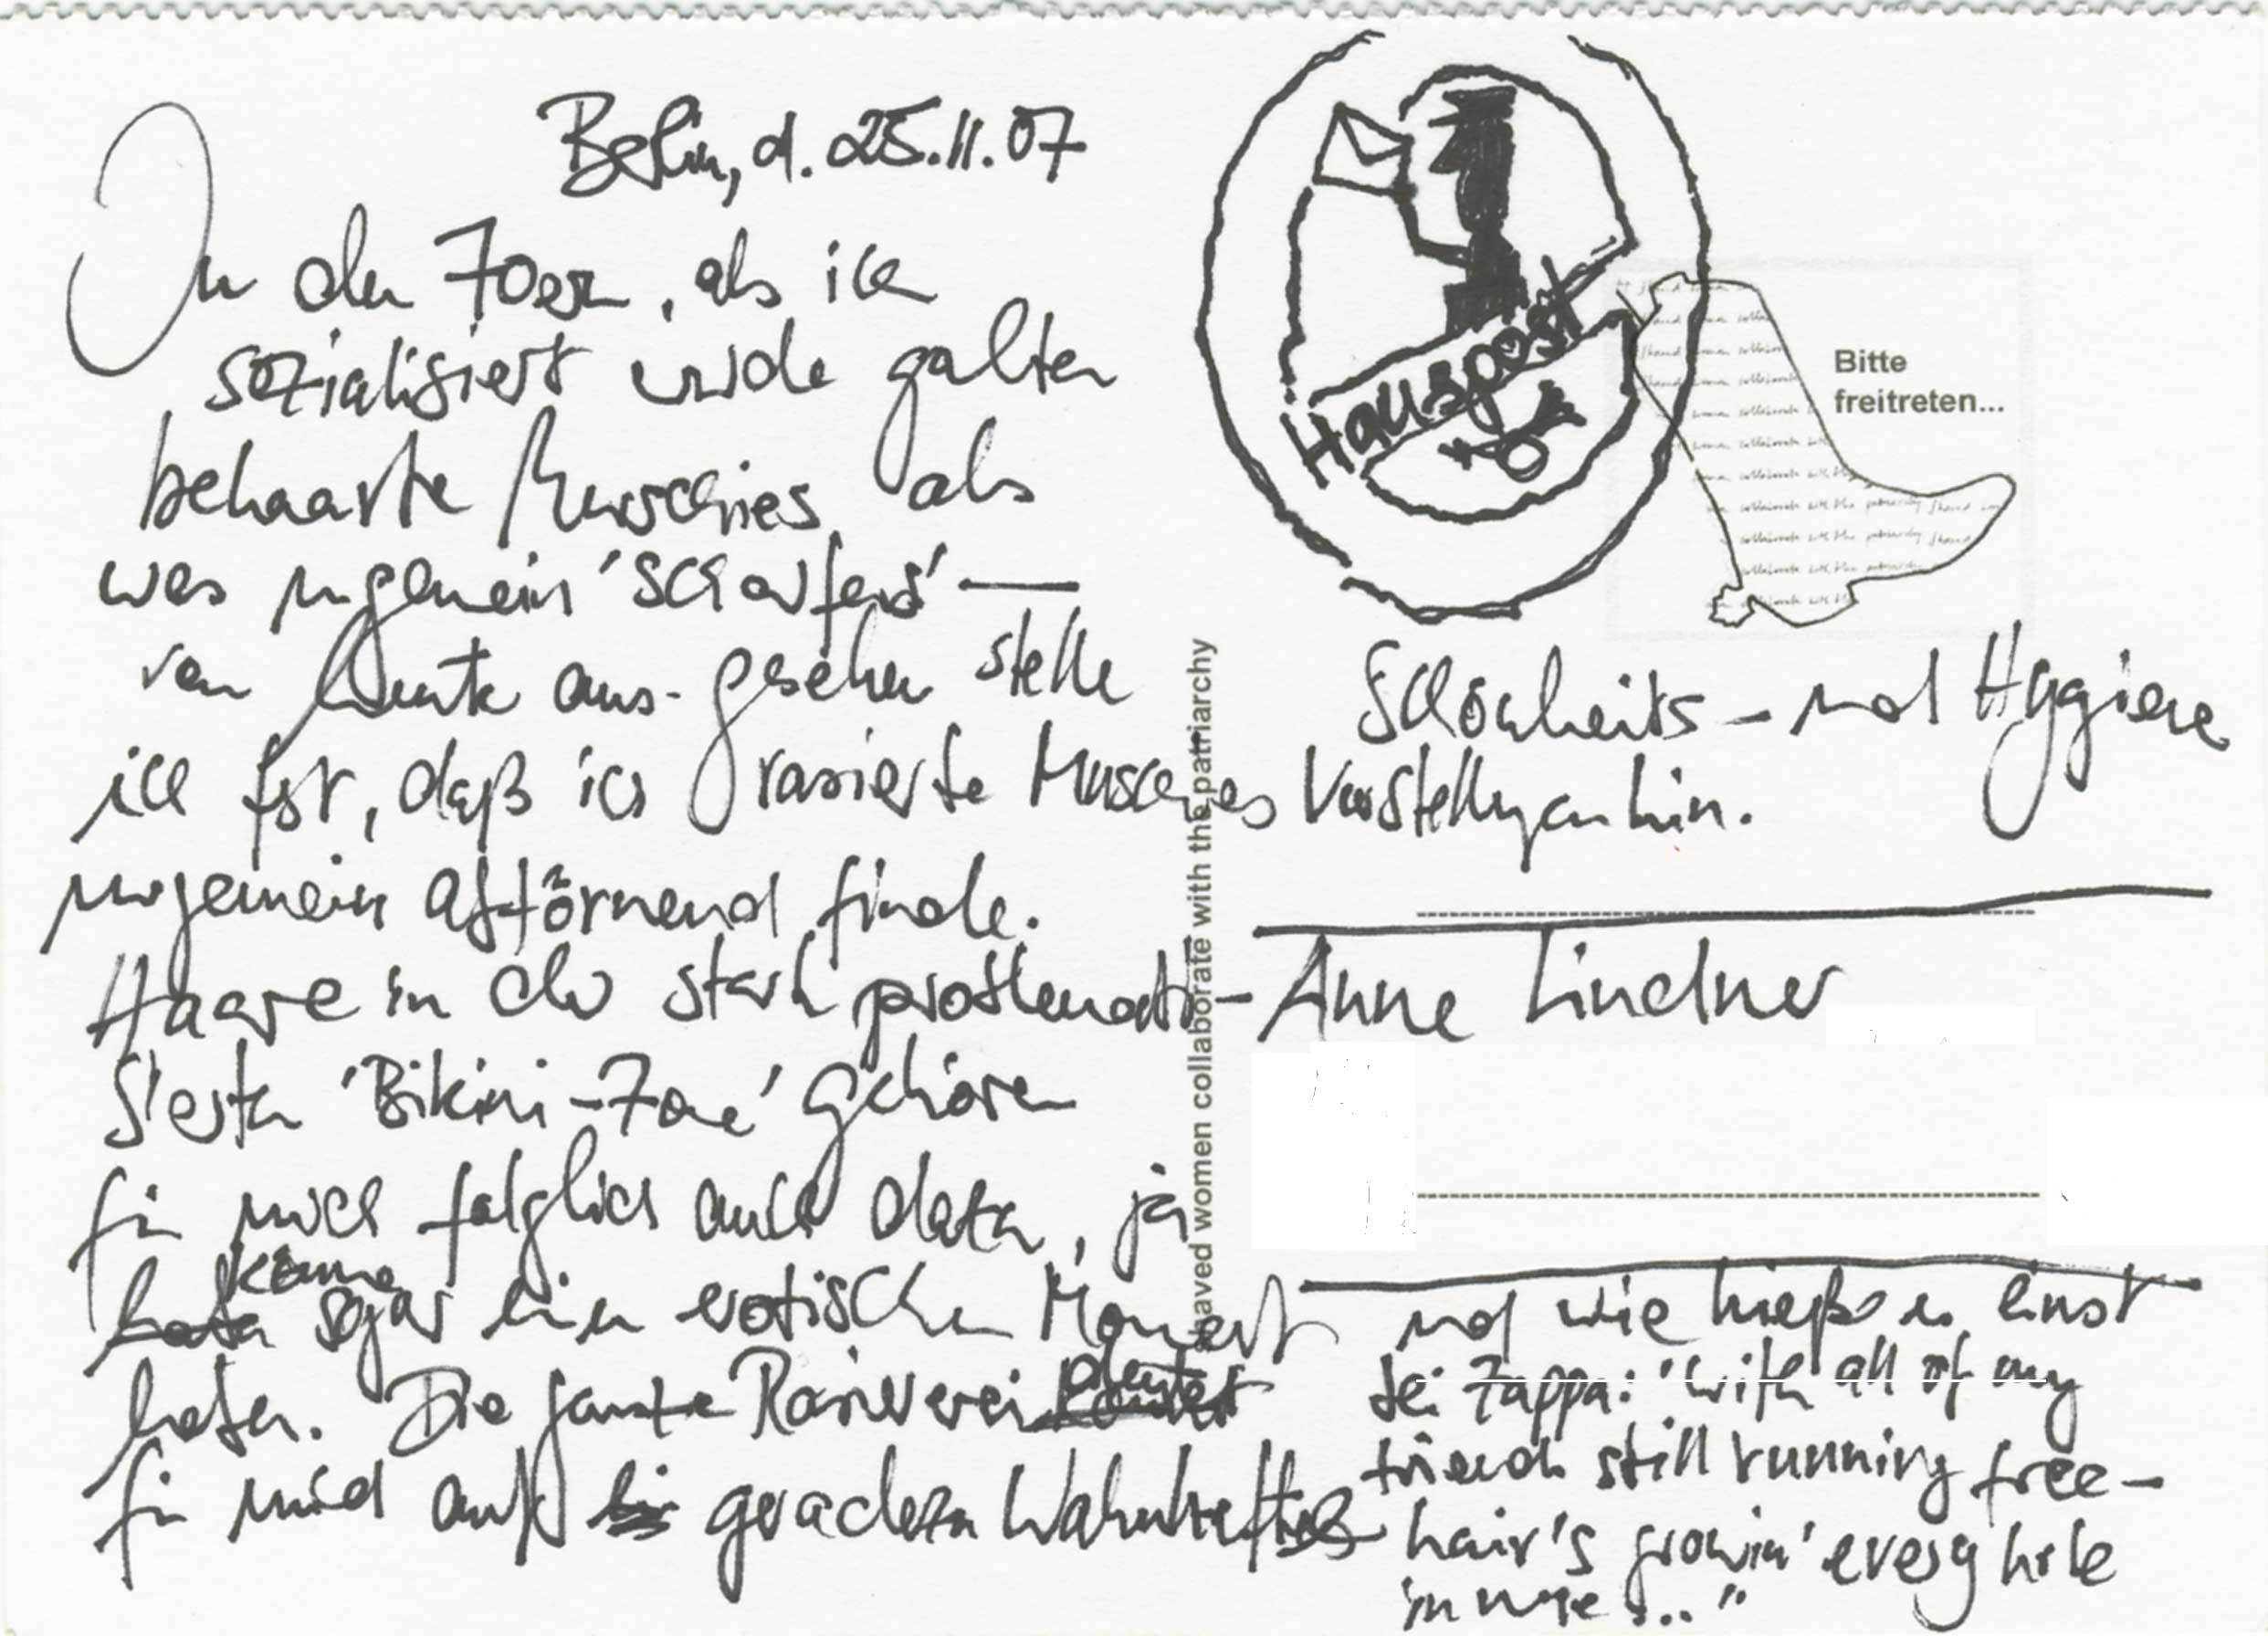 Berlin, d. 25.11.07
In den 70ern, als ich
sozialisiert wurde galten
behaarte Muschies als
was ungemein 'scharfes' —
von heute aus gesehen stelle
ich fest, daß ich rasierte Muschies
ungemein abtörnend finde.
Haare in der stark problemati-
sierten 'Bikini-Zone' gehören
für mich folglich auch dazu, ja
können
sogar einen erotischen Moment
haben. Die ganze Rasiererei deutet
für mich auf geradezu wahnhafte
Schönheits- und Hygiene
Vorstellungen hin.
Hauspost
Bitte
freitreten...
shaved women collaborate with the patriarchy
Anne Lindner
und wie hieß es einst
bei Zappa: "with all of my
friends still running free-
hair's growin' every hole
in me..."